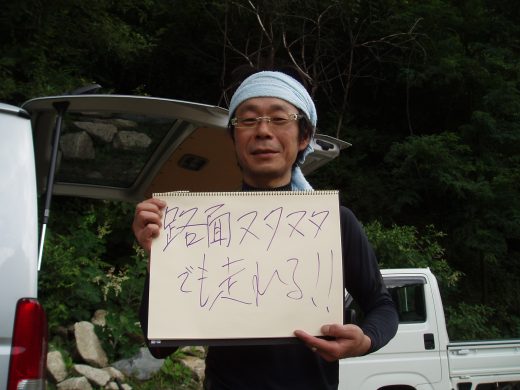 路面ヌタヌタ
でも走れる!!